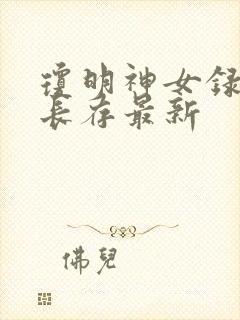 瓊明神女録
長存最新
佛兒